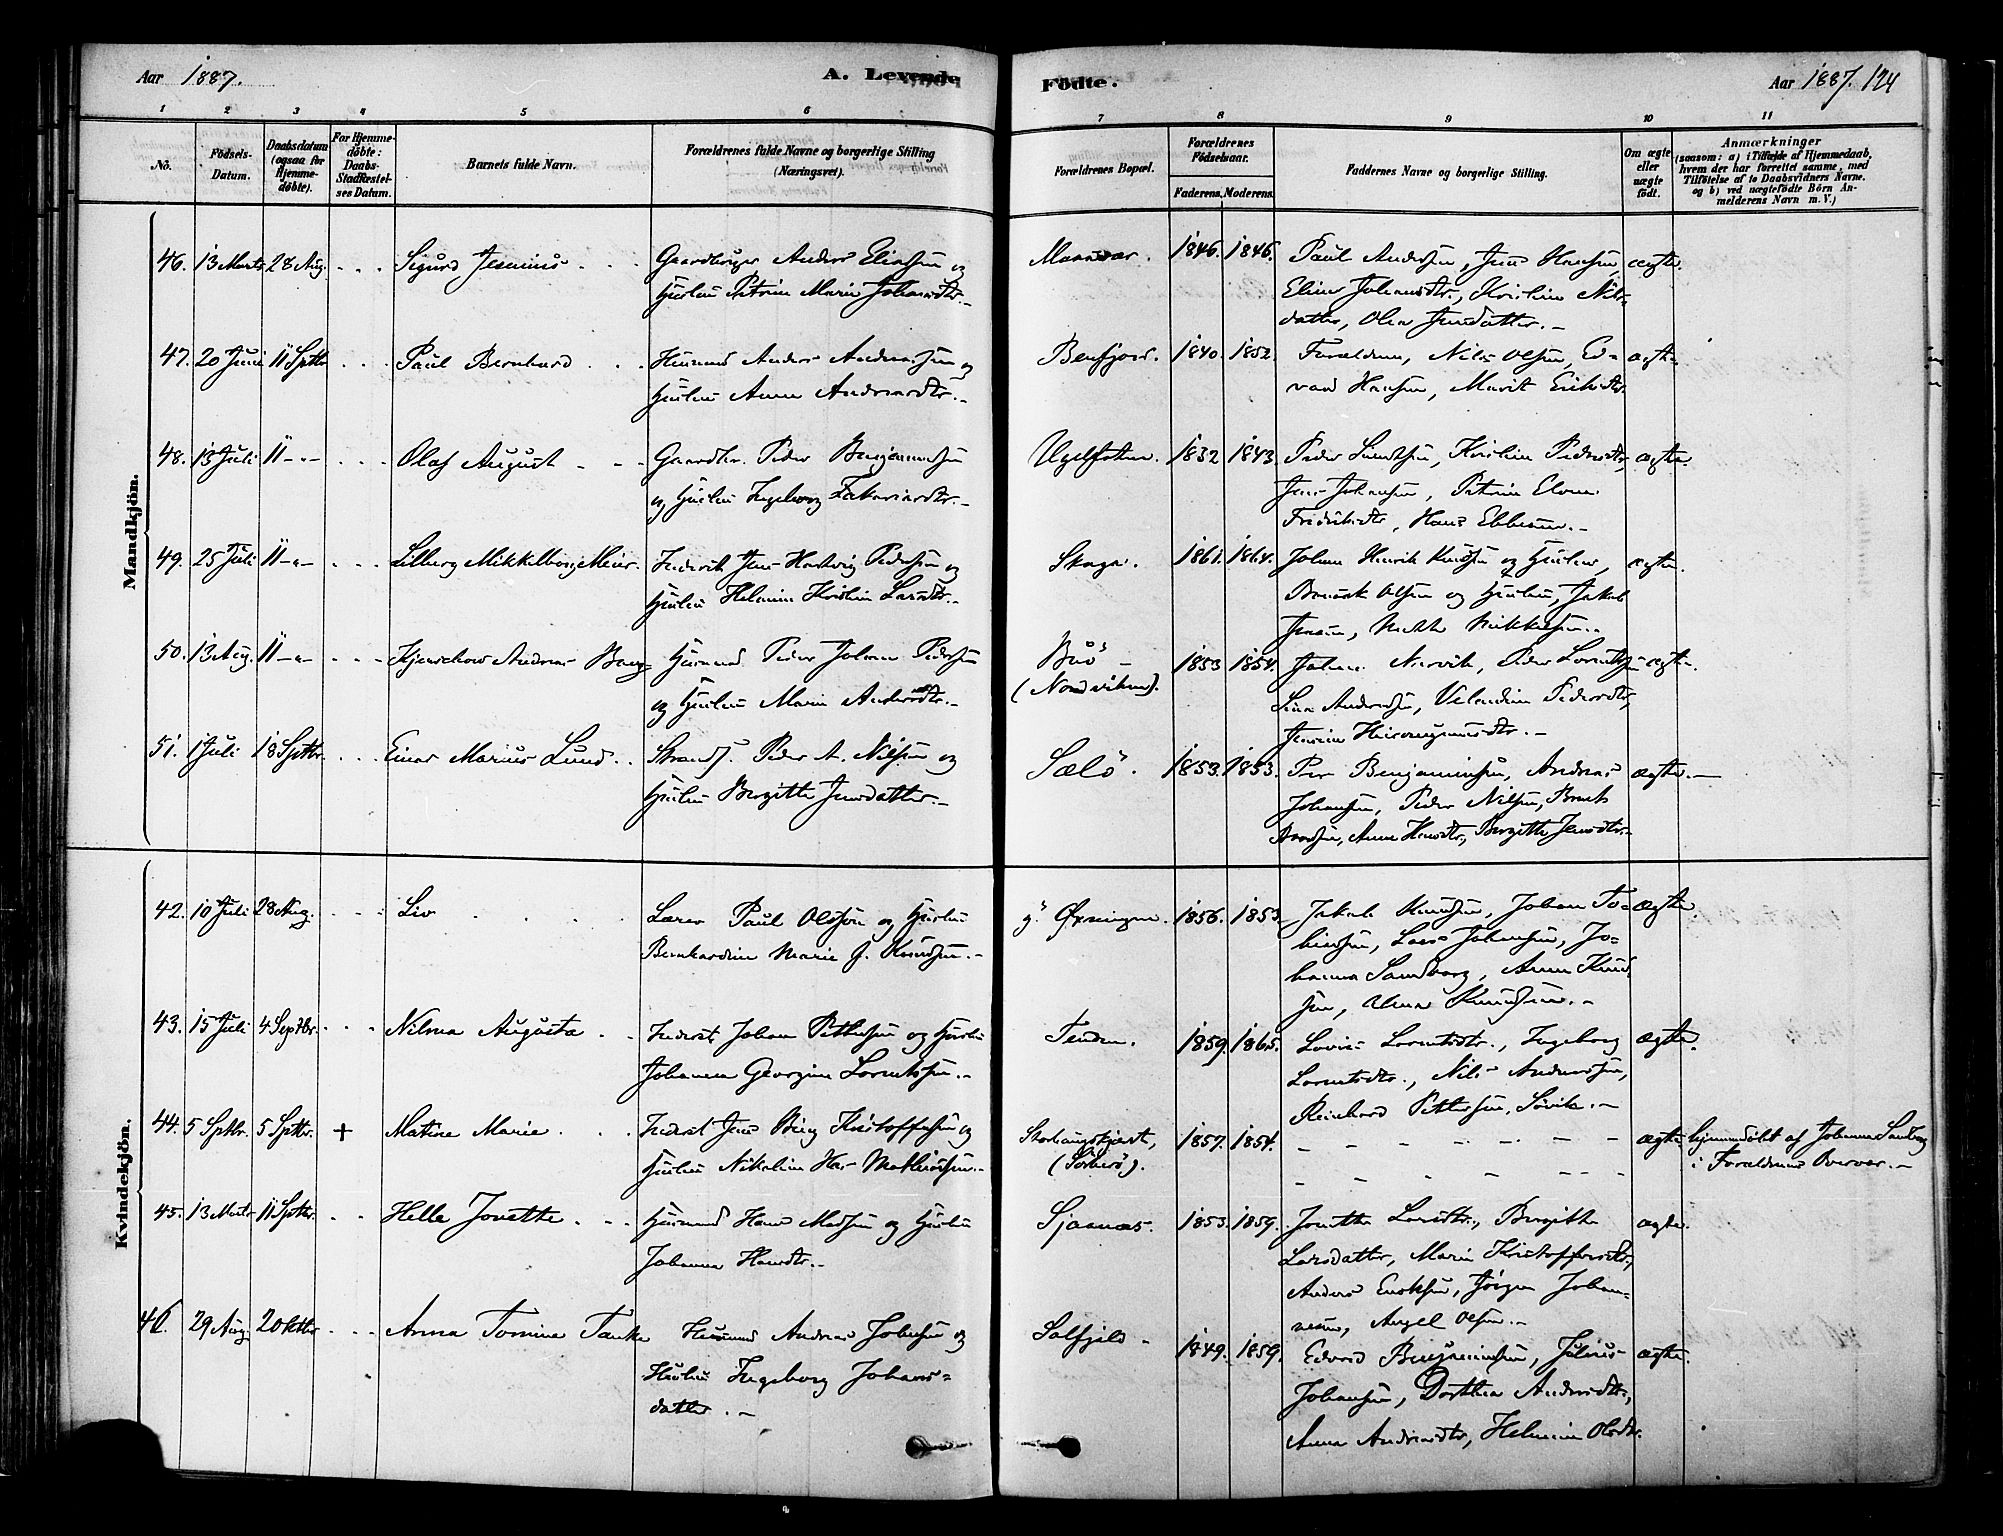 Aar 1887. A. Levende Födte. Aar 1887. 124
1 2 3 4 5 6 7 8 9 10 11
No. Födsels-Datum. Daabsdatum (ogsaa for Hjemmedöbte). For Hjemmedöbte: Daabs-Stadfæstelses Datum. Barnets fulde Navn. Forældrenes fulde Navne og borgerlige Stilling (Næringsvei). Forældrenes Bopæl. Forældrenes Födselsaar. Faderens. Moderens. Faddernes Navne og borgerlige Stilling. Om ægte eller uægte födt. Anmærkninger (saasom: a) i Tilfælde af Hjemmedaab, hvem der har forrettet samme, med Tilföielse af to Daabsvidners Navne. og b) ved uægtefödte Börn Anmelderens Navn m. V.)
Mandkjön.
46. 13 Marts 28 Aug. Sigurd Jenmius Gaardbruger Anders Eliassen og 1846. 1846. Paul Andersen, Jens Hansen, ægte.
Hustru Petrine Marie Johansdtr. Johansdtr., Kristine Nils-
datter, Olea Jensdatter.
47. 20 Juni 11 Sptbr Paul Bernhard Husmand Anders Andreassen og Bensfjord. 1840. 1852. Forældrene, Nils Olsen, Ed- ægte
Hustru Anne Andreasdtr. vard Hansen, Marit Eriksdtr.
48. 13 Juli 11 -"- Olaf August Gaardbr. Peder Benjaminsen 1832 1843. Peder Kristine Pedersdtr, ægte.
og Hustru Ingeborg Zakariasdtr. Jens Johansen, Petrine
Fredriksdtr, Hans Ebbesen.
49. 25 Juli 11 -"- Mikkelborg Meier. Inderst Jens Hartvig Pedersen og Skaga. 1861. 1864. Johan Henrik Knudsen og Hustru, ægte.
Hustru Helmine Kristine Larsdtr. Olsen og Hustru, Jakob
Jensen, Mikkelsen.
50. 13 Aug. 11 -"- Andreas Berg Husmand Peder Johan Pedersen Buö 1853 1854. Johan Peder Lorentsen ægte
og Hustru Marie Andersdtr. (Nordviken). Andersen, Pedersdtr,
Hieronymusdtr.
51. 1 Juli 18 Sptbr. Einar Marius Lund Strands. Peder A. Nilsen og Sælö. 1853. 1853. Per Benjaminsen, Andreas ægte.
Hustru Bergitte Jensdatter. Johansen, Peder Nilsen,
Anne Hansdtr, Bergitte Jensdtr.
Kvindekjön.
42. 10 Juli 28 Aug. Liv Lærer Paul Olssön og Hustru g. Öxningen. 1856. 1853. Jakob Knudsen, Johan To- ægte
Bernhardine Marie J. Knudsen. biassen, Lars Johansen, Jo-
hanna Sandberg, Anne Knud-
sen, Alma Knudsen.
43. 15 Juli 4 Septbr. Nilma Augusta Inderst Johan Pettersen og Hustru Tenden. 1859. 1865. Lovise Lorentsdtr., Ingeborg ægte.
Johanna Georgine Lorentssen. Lorentsdtr., Nils Andersen,
Reinhard Pettersen, Sövik.
44. 5 Sptbr. 5 Sptbr. + Matine Marie Inderst Jens Bing Kristoffersen og 1857. 1854. ægte hjemmedöbt af Johanna Sandberg
Hustru Nikoline Mathisen. i Forældrenes Overvær.
45. 13 Marts 11 Sptbr. Helle Jonette Husmand Hans Madsen og Hustru Sjaanæs. 1853. 1859. Jonette Larsdtr., Bergitte ægte.
Johanna Hansdtr. Larsdatter, Marie Kristoffersdtr,
Anders Eriksen, Jörgen Johan-
nesen, Angel Olsen.
46. 29 Aug. 2 Oktbr Anna Tomine Tanke Husmand Andreas Johnsen og Solfjeld 1849. 1859. Edvard Benjaminsen, Julius ægte.
Hustru Ingeborg Johans- Johansen, Dorthea Andersdtr,
datter. Anna Andreasdtr, Helmine Olsdtr.